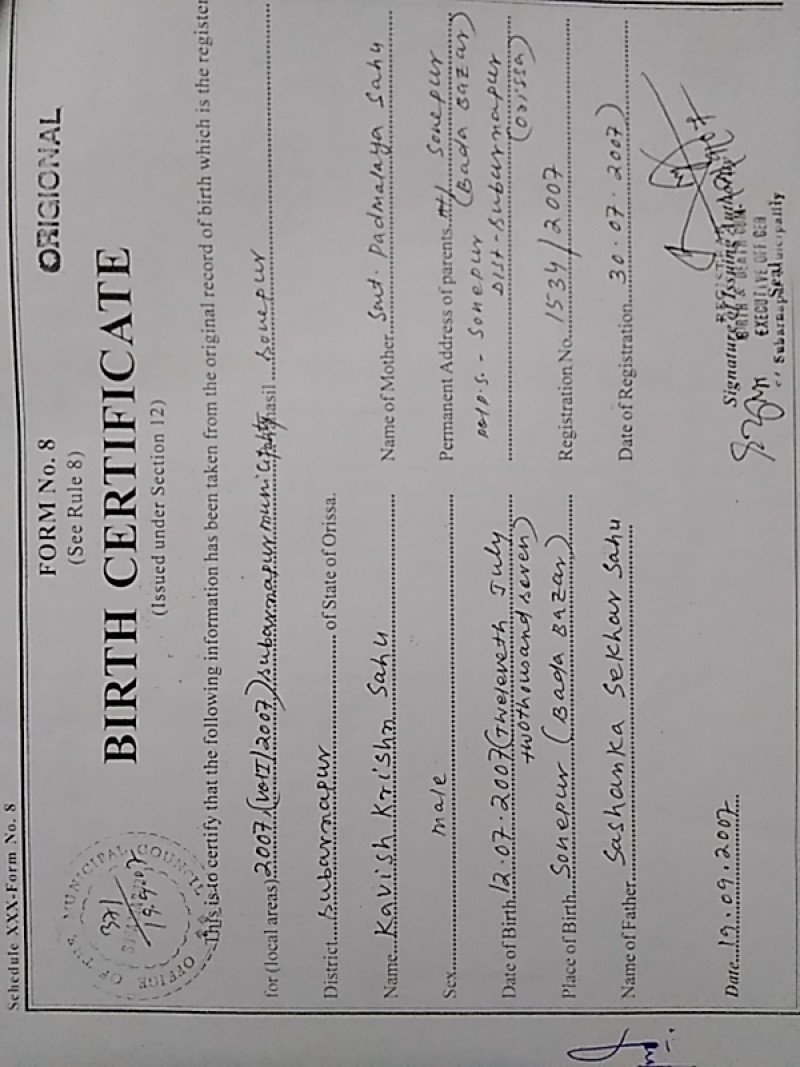 Schedule XXX-Form No. 8
FORM No. 8
ORIGIONAL
(See Rule 8)
BIRTH CERTIFICATE
(Issued under Section 12)
OFFICE OF THE MUNICIPAL COUNCIL
371
19.9.07
This is to certify that the following information has been taken from the original record of birth which is the register
for (local areas) 2007, (Vol I/2007) Subarnapur municipality Tahasil Sonepur
District Subarnapur of State of Orissa.
Name Kavish Krishn Sahu
Name of Mother Smt. Padmalaya Sahu
Sex male
Permanent Address of parents At/ Sonepur
(Bada Bazar)
Date of Birth 12.07.2007 (Tweleveth July
twothousand seven)
P.S. - Sonepur
Dist - Subarnapur
(Orissa)
Place of Birth Sonepur (Bada Bazar)
Registration No. 1534/2007
Name of Father Sashanka Sekhar Sahu
Date of Registration 30.07.2007)
Date 19.09.2007
Signature of Issuing Authority
BIRTH & DEATH
EXECUTIVE OFFICER
Seal
Subarnapur Municipality